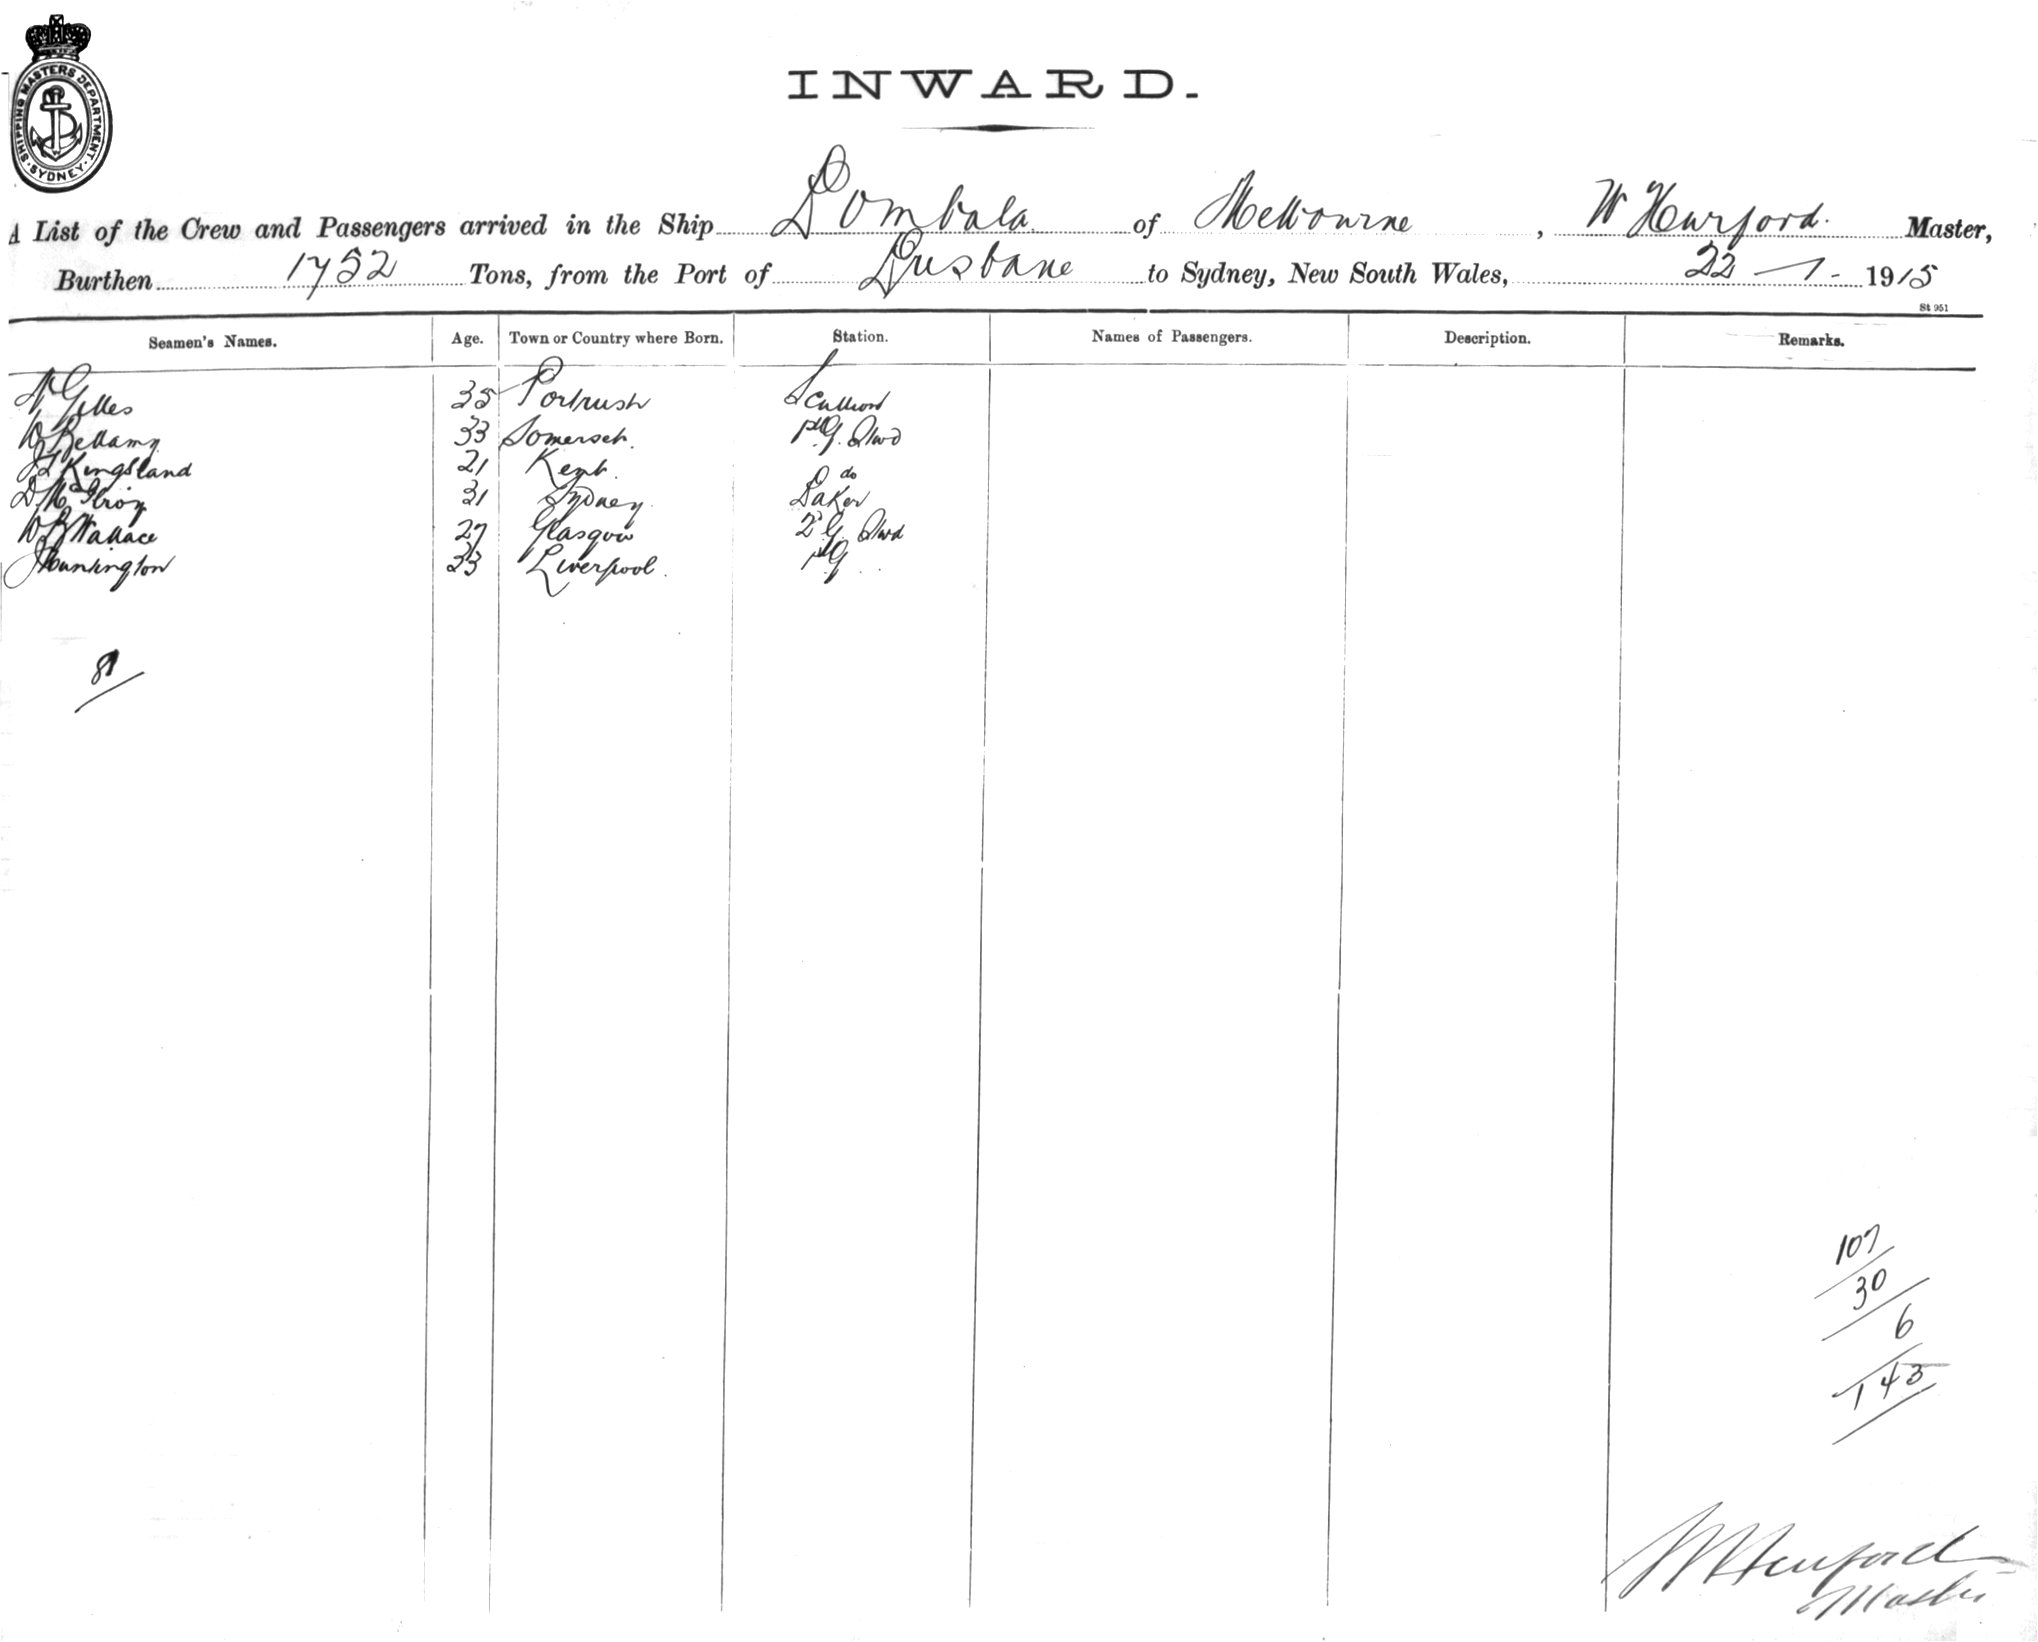 SHIPPING MASTERS DEPARTMENT. SYDNEY.
INWARD.
A List of the Crew and Passengers arrived in the Ship Bombala of Melbourne, W Hurford. Master,
Burthen 1752 Tons, from the Port of Brisbane to Sydney, New South Wales, 22-1-1915
St 951
Seamen's Names. Age. Town or Country where Born. Station. Names of Passengers. Description. Remarks.
Gilles 35 Portrush Scullion
W Bellamy 33 Somerset. 1st G. Stwd
Kingsland 21 Kent. do
D. McIlroy 31 Sydney Baker
W Wallace 27 Glasgow 2d G. Stwd
J Huntington 23 Liverpool. 1st G
107
30
6
143
W Hurford
Master